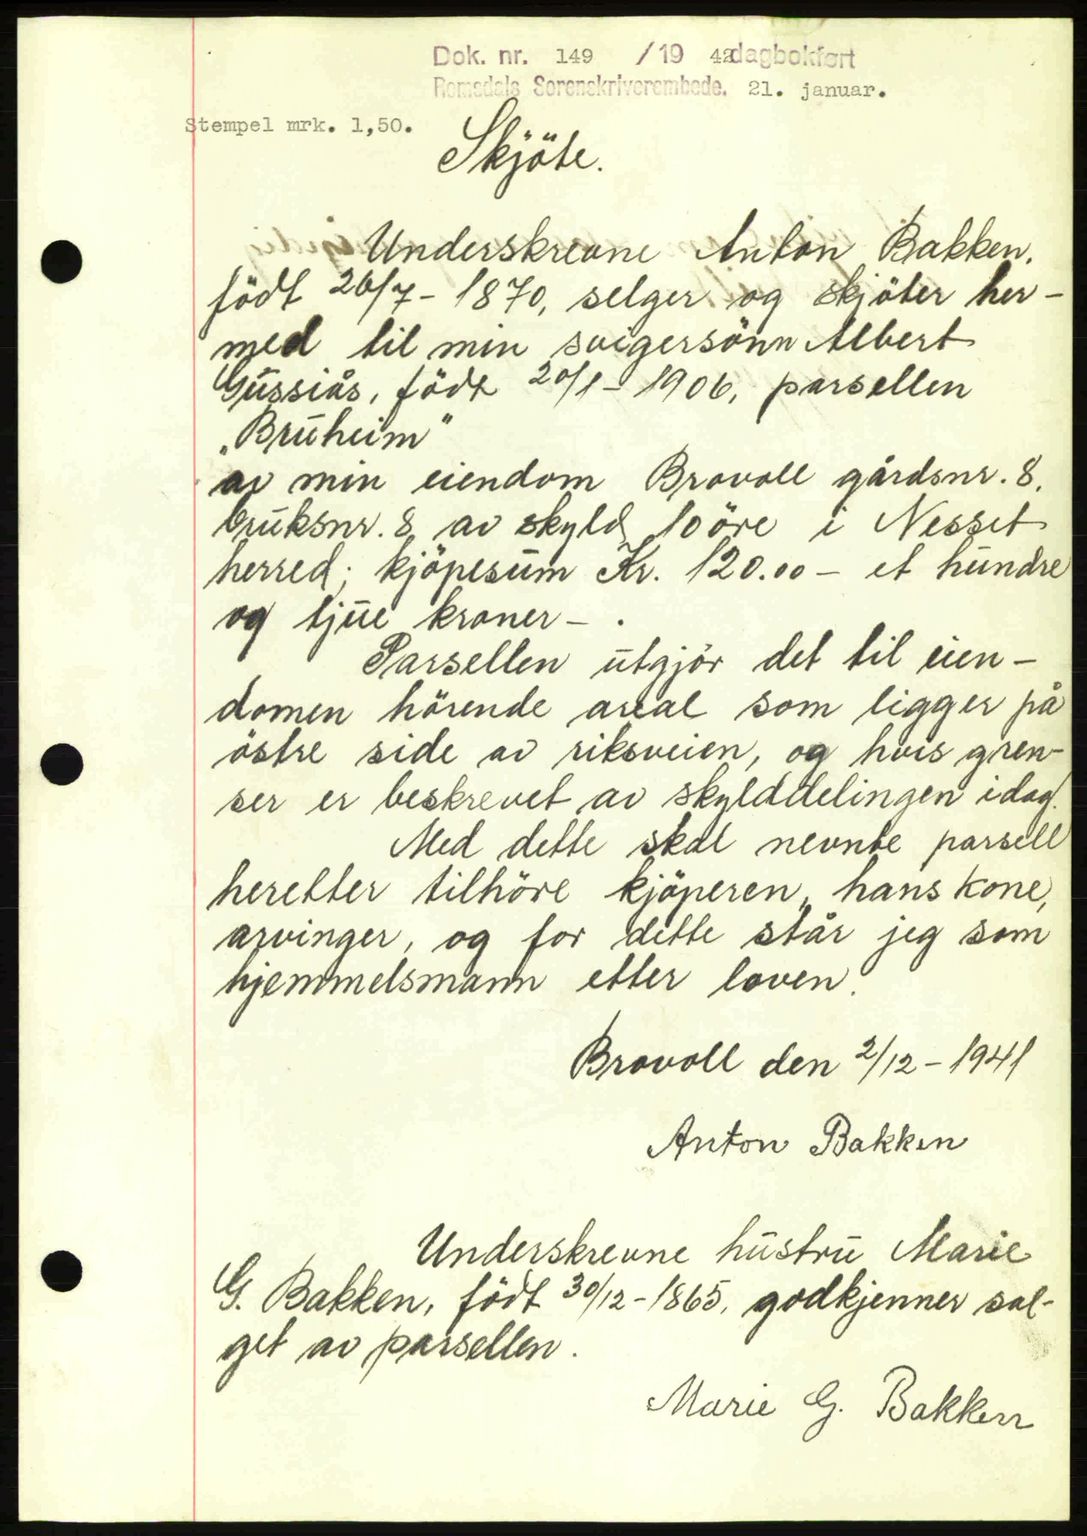 Dok. nr. 149 /19 42 dagbokført
Romsdals Sorenskriverembede. 21. januar.
Stempel mrk. 1,50.
Skjöte.
Underskrevne Anton Bakken,
födt 26/7 - 1870, selger og skjöter her-
med til min svigersönn Albert
Gussiås, födt 20/1 - 1906, parsellen
„Bruheim"
av min eiendom Brovoll gårdsnr. 8,
bruksnr. 8 av skyld 10 öre i Nesset
herred; kjöpesum Kr. 120.00 - et hundre
og tjue kroner - .
Parsellen utgjör det til eien-
domen hörende areal som ligger på
östre side av riksveien, og hvis gren-
ser er beskrevet av skylddelingen idag.
Med dette skal nevnte parsell
heretter tilhöre kjöperen, hans kone,
arvinger, og for dette står jeg som
hjemmelsmann etter loven.
Brovoll den 2/12 - 1941
Anton Bakken
Underskrevne hustru Marie
G. Bakken, födt 30/12 - 1865, godkjenner sal-
get av parsellen.
Marie G. Bakken